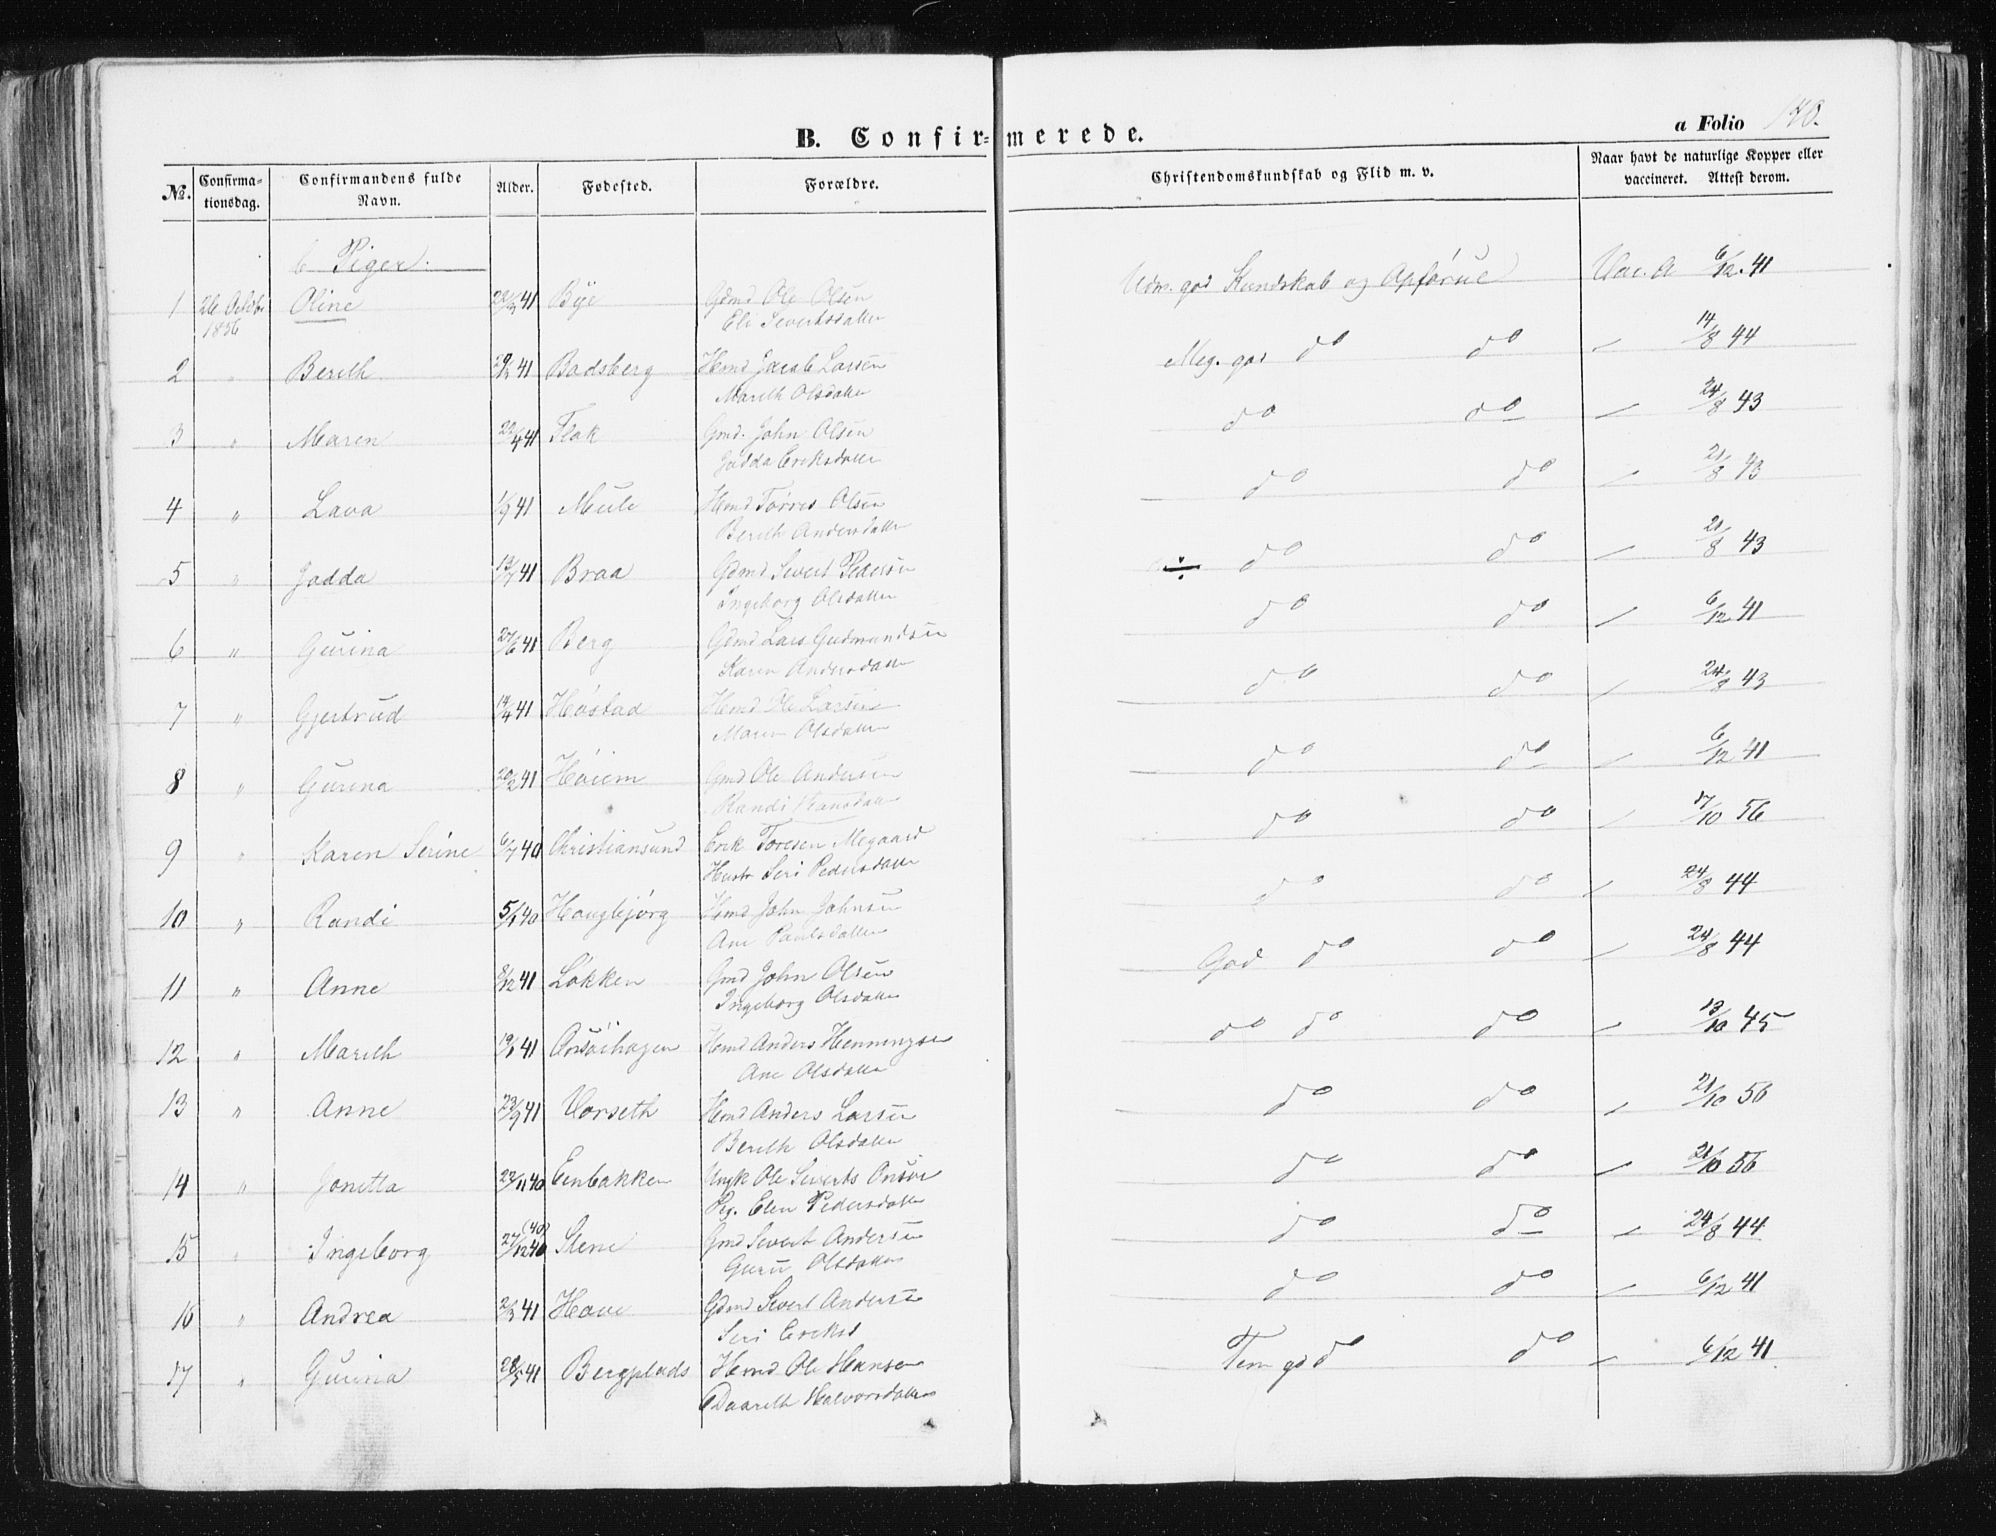 B. Confirmerede.
a Folio 140.
No. Confirmationsdag. Confirmandens fulde Navn. Alder. Fødested. Forældre. Christendomskundskab og Flid m. v. Naar havt de naturlige Kopper eller vaccineret. Attest derom.
Piger.
1 26 Octbr Oline 41 Bye Gdmd Ole Olsen Udm. god Kundskab og Opførsel Vac. A 6/12 41
1856 Eli Sivertsdatter
2 " Berith 41 Bodsberg Hmd Jacob Larsen Meg. god do do 14/8 44
Marith Olsdatter
3 " Maren 22/4 41 Flak Gmd. John Olsen do do 24/8 43
Jodda Eriksdatter
4 " Lava 41 Mule Hmd Torres Olsen do do 21/8 43
Berith Andersdatter
5 " Jodda 41 Braa Gdmd Sivert Pedersen do do 21/8 43
Ingeborg Olsdatter
6 " Gurina 27/6 41 Berg Gdmd Lars Gudmundsen do do 6/12 41
Karen Andersdatter
7 " Gjertrud 41 Høstad Hmd Ole Larsen do do 24/8 43
Maren Olsdatter
8 " Gurina 20/2 41 Høiem Gmd Ole Andersen do do 6/12 41
Randi Hansdatter
9 " Karen Serine 6/7 40 Christiansund Erik Toresen Megaard do do 17/10 56
Hustr Seri Pedersdatter
10 " Randi 40 Haugbjørg Hmd John Johnsen do do 24/8 44
Ane Paulsdatter
11 " Anne 8/12 41 Løkken Gmd John Olsen God do do 24/8 44
Ingeborg Olsdatter
12 " Marith 41 Onsøihagen Hmd Anders Henningsen do do do 13/10 45
Ane Olsdatter
13 " Anne 23/9 41 Vorseth Hmd Anders Larsen do do 21/10 56
Berith Olsdatter
14 " Jonetta 22/11 40 Eenbakken Ungk Ole Siverts Onsøi do do 21/10 56
Pig. Elen Pedersdatter
15 " Ingeborg 27/12 40 (40) Stene Gmd Sivert Andersen do do 24/8 44
Guru Olsdatter
16 " Andrea 2/3 41 Hove Gdmd Sivert Andersen do do 6/12 41
Seri Eriksd
17 " Gurina 28/5 41 Bergplads Hmd Ole Hansen Tem god do 6/12 41
Daarith Halvorsdatter